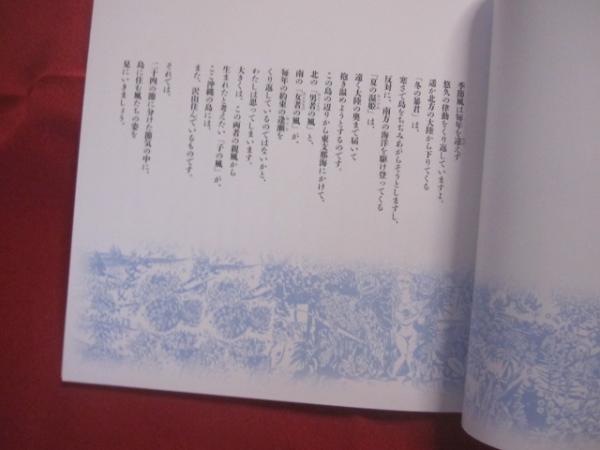 季節風は毎年を違えず
悠久の律動をくり返していますよ。
遥か北方の大陸から下りてくる
「冬の暴君」は、
寒さで島をちぢみあがらそうとしますし、
反対に、南方の海洋を駆け登ってくる
「夏の温姫」は、
遠く大陸の奥まで届いて
抱き温めようとするのです。
この島の辺りから東支那海にかけて、
北の「男者の風」と、
南の「女者の風」が、
毎年の約束の逢瀬を
くり返しているのではないかと、
わたしは思ってしまいます。
大きくは、この両者の親風から
生まれたと考えたい、「子の風」が、
ここ沖縄の島には、
また、沢山住んでいるものです。
それでは、
二十四の節に分けた節気の中に、
島に住む風たちの姿を
見にいきましょう。